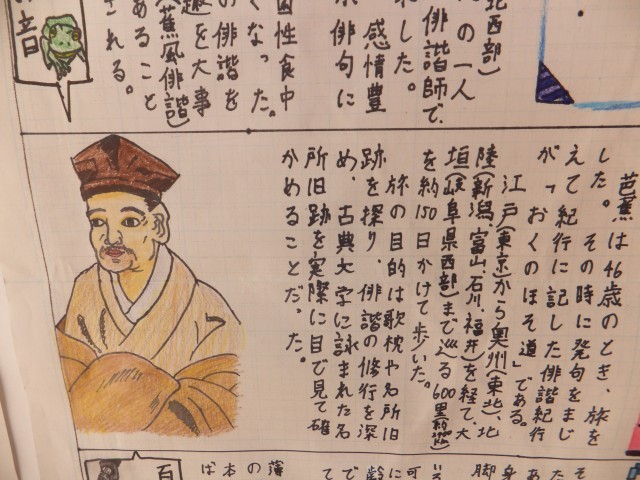 北西部)
の一人
俳諧師で、
した。
感情豊
俳句に
性食中
くなった。
の俳諧を
趣を大事
(蕉風俳諧)
あること
される。
音
芭蕉は46歳のとき、旅を
した。その時に発句をまじ
えて紀行に記した俳諧紀行
が「おくのほそ道」である。
江戸(東京)から奥州(東北)、北
陸(新潟、富山、石川、福井)を経て、大
垣(岐阜県西部)まで巡る600里
を約150日かけて歩いた。
旅の目的は歌枕や名所旧
跡を探り、俳諧の修行を深
め、古典文学に詠まれた名
所旧跡を実際に目で見て確
かめることだった。
そ
た
あ
身
脚
い
可
に
齢
で
て
薄
の
本
ば
百